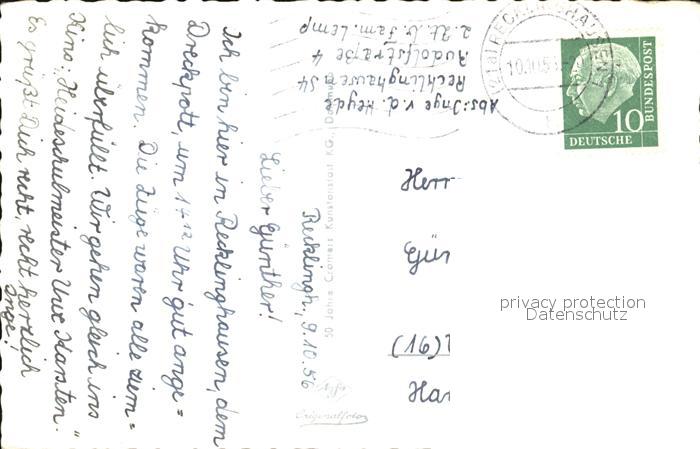 Recklingh., 9.10.56
Lieber Günther!
Ich bin hier in Recklinghausen, dem
Dreckpott, um 17¹² Uhr gut ange=
kommen. Die Züge waren alle ziem=
lich überfüllt. Wir gehen gleich ins
Kino: „Heideschulmeister Uwe Karsten."
Es grüßt Dich recht, recht herzlich
Inge!
Abs: Inge v. d. Heyde
Recklinghausen S4
Rudolfstraße 4
z. Zt. b. Fam. Lemp
50 Jahre Cramers Kunstanstalt KG., Dortmund
Originalfoto
RECKLINGHAUSEN
DEUTSCHE
BUNDESPOST
10
Herr
Gün
(16)
Han
privacy protection
Datenschutz